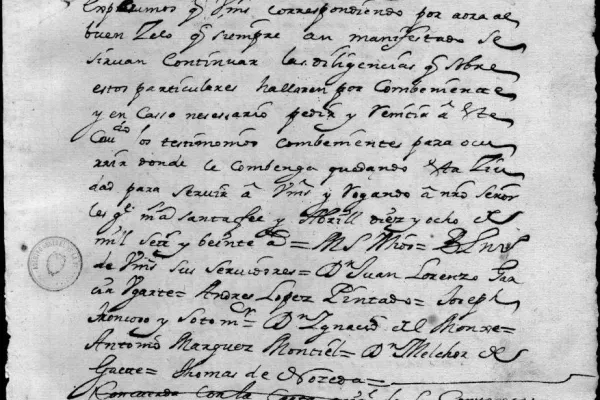 Expresamos q Vms correspondiendo por aora al
buen Zelo q siempre an manifestado se
siruan Continuar las diligencias q sobre
estos particulares hallaren por Combeniente
y en Casso necessario pedir y Remitir a este
Caudo los testimonios combenientes para ocu
rrir donde le Combenga quedando esta Ziu
dad para seruir a Vms y Rogando a nro Señor
les ge ms as Santa fee y Abrill diez y ocho de
mill setts y beinte
de Vms sus seruidores = Dn Juan Lorenzo Gar
cia Vgarte = Andres Lopez Pintado = Joseph
Troncoso y Sotomr Dn Ignacio del Monxe =
Antonio Marquez Montiel = Dn Melchor de
Gaette = Thomas de Noreda =
Concuerda Con la